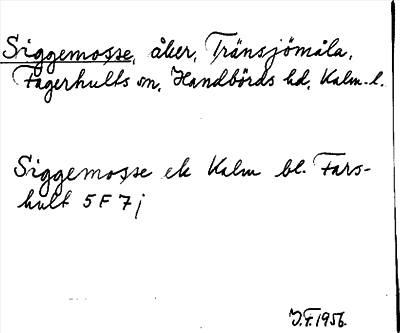 Siggemosse, åker, Tränsjömåla,
Fagerhults sn, Handbörds hd, Kalm. l.
Siggemosse ek Kalm bl. Fars-
hult 5 F 7 j
J.F. 1956.